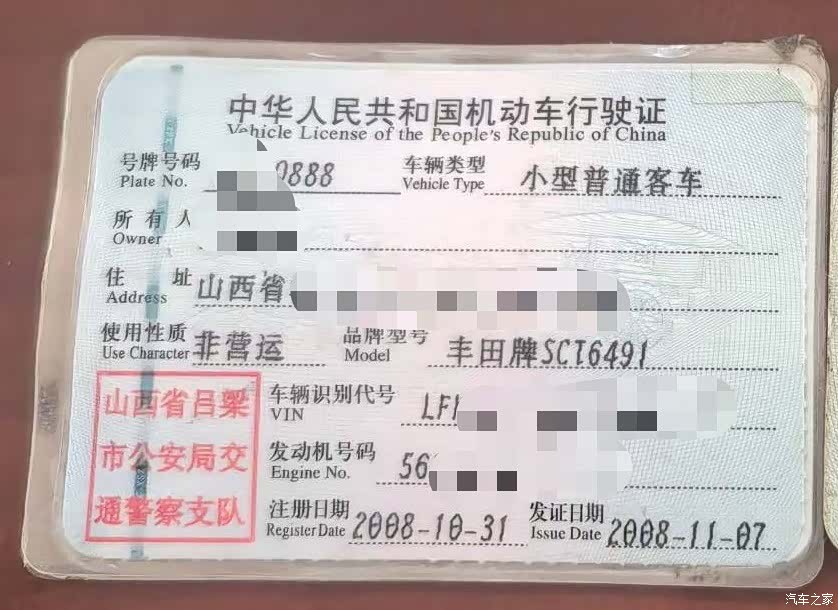 中华人民共和国机动车行驶证
Vehicle License of the People's Republic of China
号牌号码 0888 车辆类型 小型普通客车
Plate No. Vehicle Type
所有人
Owner
住址 山西省
Address
使用性质 非营运 品牌型号 丰田牌SCT6491
Use Character Model
山西省吕梁
市公安局交
通警察支队
车辆识别代号 LF
VIN
发动机号码 56
Engine No.
注册日期 2008-10-31 发证日期 2008-11-07
Register Date Issue Date
汽车之家